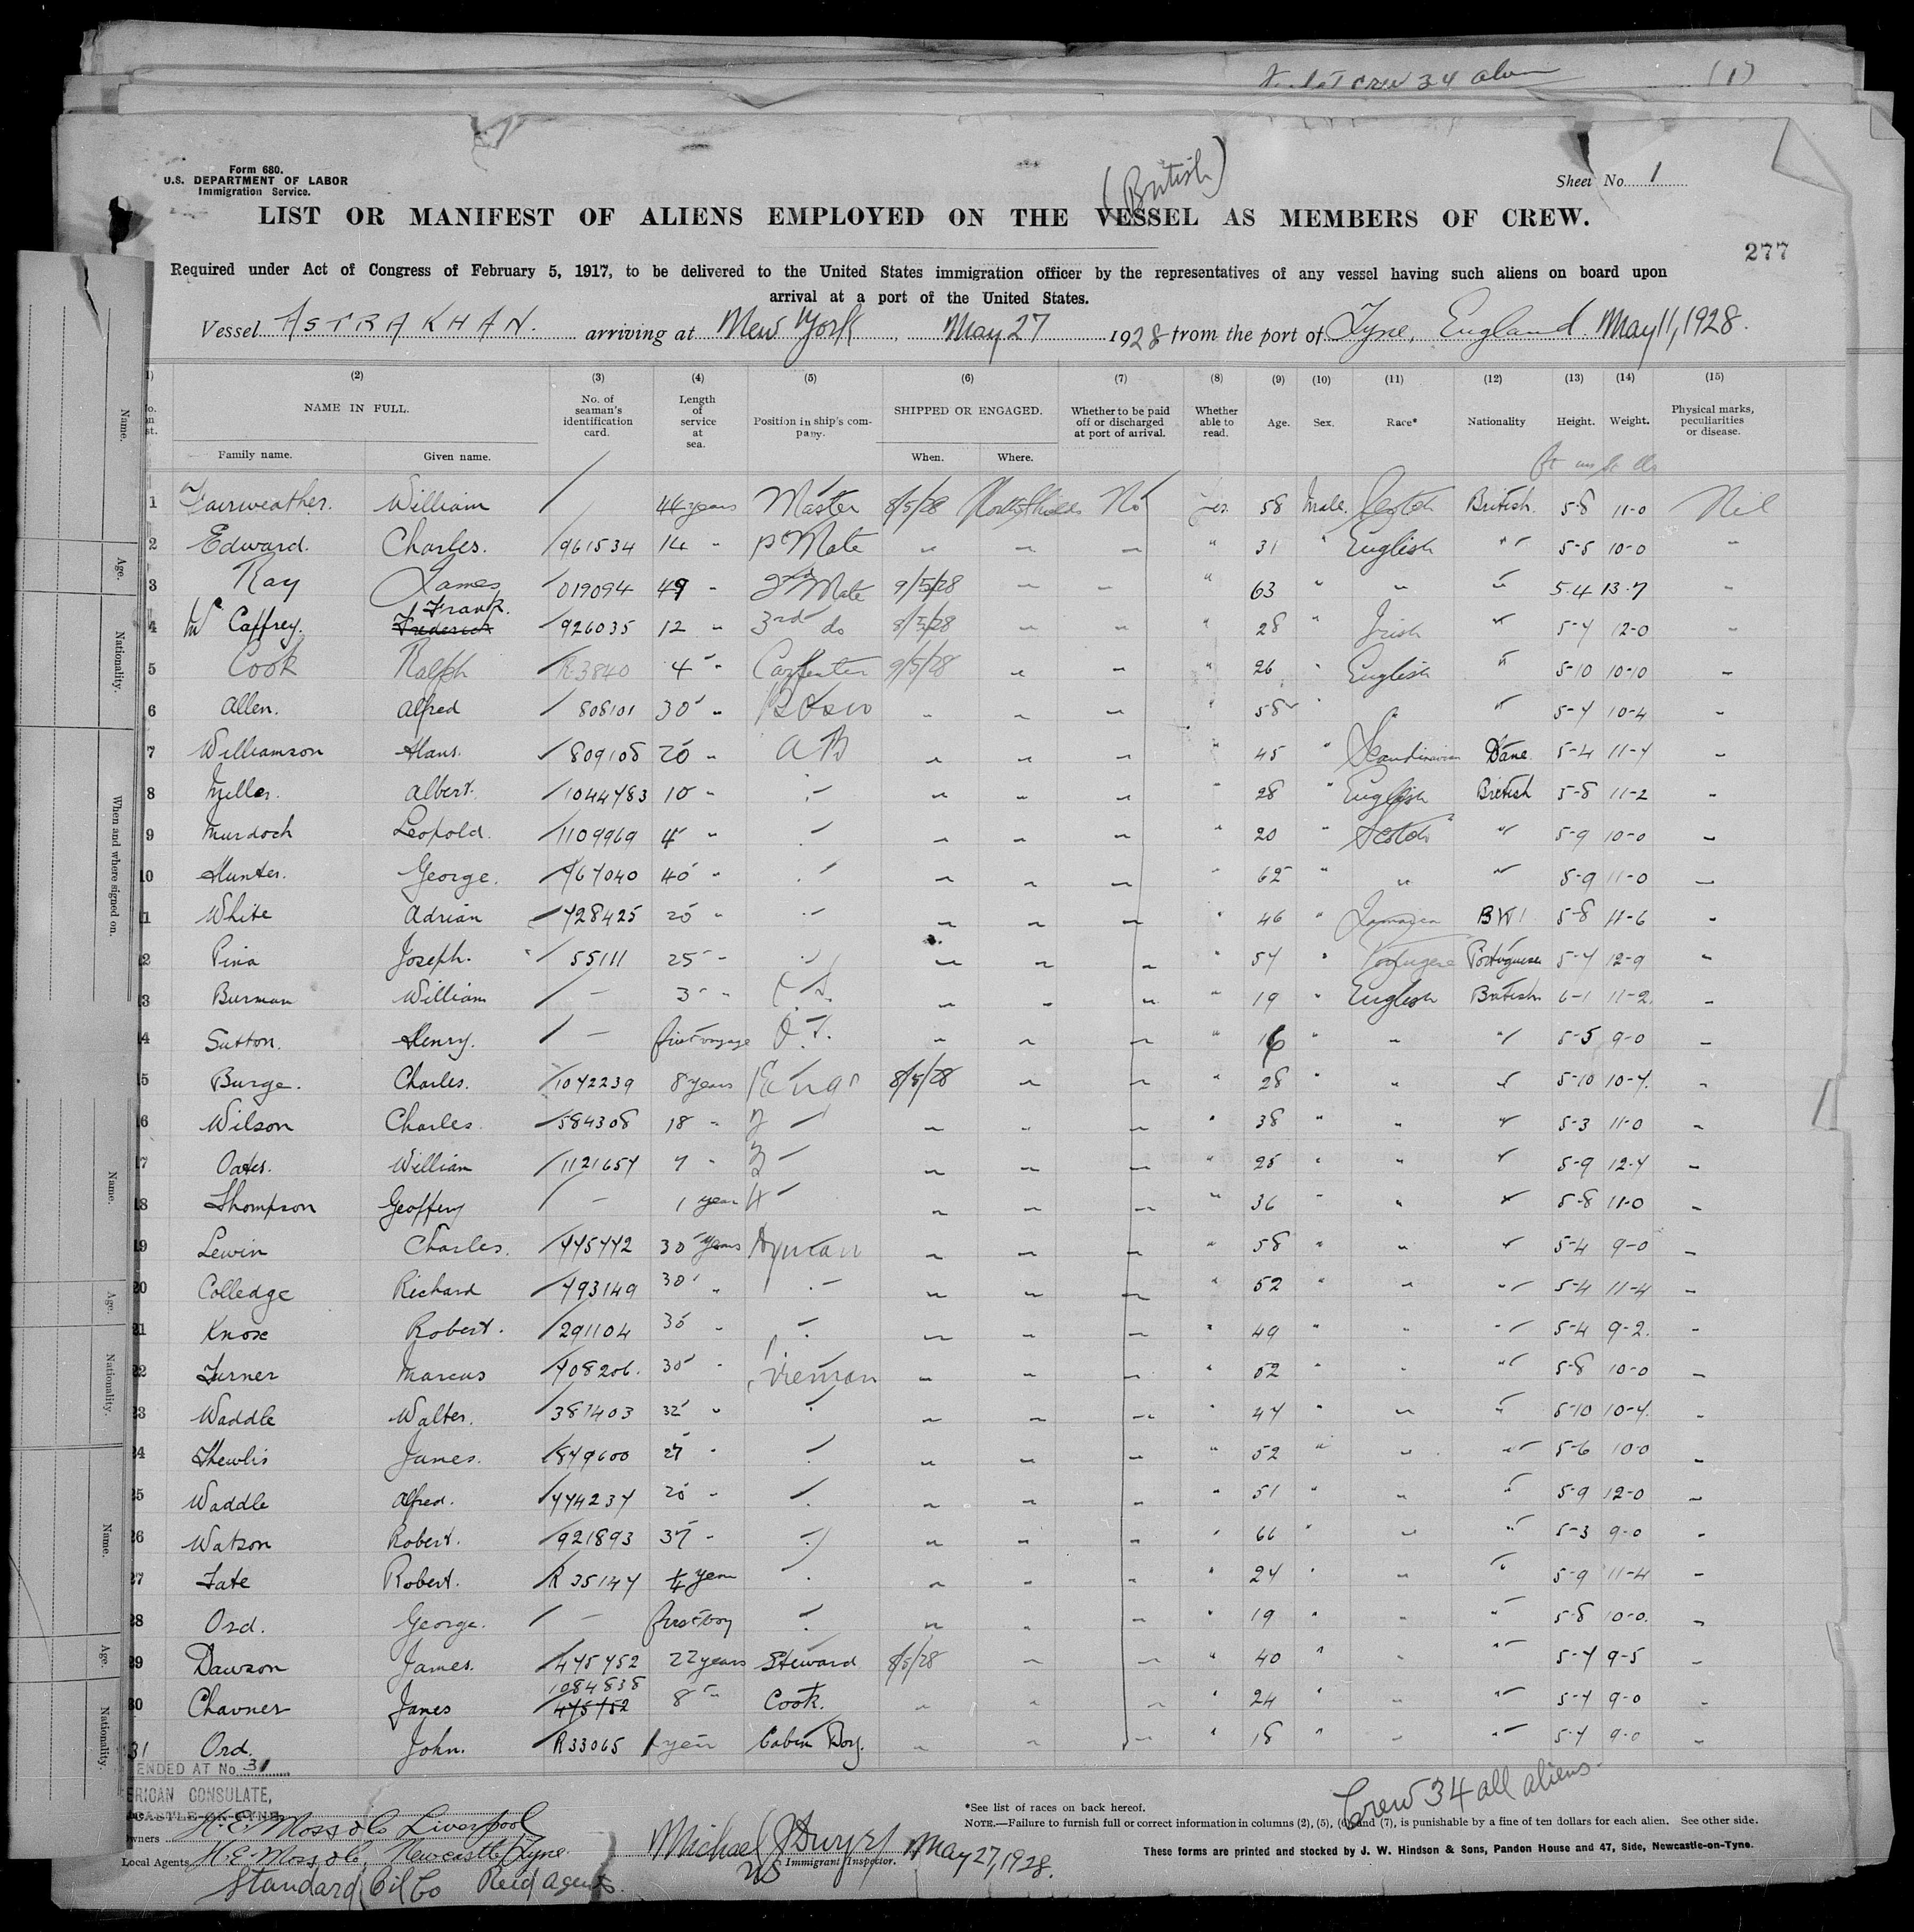 Total crew 34 alien (1)
Form 680.
U.S. DEPARTMENT OF LABOR
Immigration Service.
(British)
Sheet No. 1
LIST OR MANIFEST OF ALIENS EMPLOYED ON THE VESSEL AS MEMBERS OF CREW.
277
Required under Act of Congress of February 5, 1917, to be delivered to the United States immigration officer by the representatives of any vessel having such aliens on board upon
arrival at a port of the United States.
Vessel ASTRAKHAN. arriving at New York, May 27 1928 from the port of Tyne, England. May 11, 1928.
(2) (3) (4) (5) (6) (7) (8) (9) (10) (11) (12) (13) (14) (15)
NAME IN FULL. No. of seaman's identification card. Length of service at sea. Position in ship's company. SHIPPED OR ENGAGED. Whether to be paid off or discharged at port of arrival. Whether able to read. Age. Sex. Race* Nationality Height. Weight. Physical marks, peculiarities or disease.
Family name. Given name. When. Where.
1 Fairweather. William 44 years Master 8/5/28 North Shields No Yes 58 Male. Scotch British. 5-8 11-0 Nil
2 Edward. Charles. 961534 14 " Mate " " " " 31 " English " 5-5 10-0 "
3 Ray James 019094 49 " 2nd Mate 9/5/28 " " " 63 " " " 5-4 13-7 "
4 McCaffrey. Frank. Frederick 926035 12 " 3rd do 8/5/28 " " " 28 " Irish " 5-4 12-0 "
5 Cook Ralph R.3840 4 " Carpenter 9/5/28 " " " 26 " English " 5-10 10-10 "
6 Allen. Alfred 808101 30 " Bosun " " " " 58 " " " 5-4 10-4 "
7 Williamson Hans. 809108 20 " AB " " " " 45 " Scandinavian Dane 5-4 11-4 "
8 Miller. Albert. 1044783 10 " " " " " " 28 " English British 5-8 11-2 "
9 Murdoch Leopold. 1109969 4 " " " " " " 20 " Scotch " 5-9 10-0 "
10 Hunter. George. 767040 40 " " " " " " 62 " " " 5-9 11-0 "
11 White Adrian 728425 20 " " " " " " 46 " Jamaica BWI 5-8 11-6 "
12 Pina Joseph. 55111 25 " " " " " " 54 " Portugese Portuguese 5-4 12-9 "
13 Burman William - 3 " " " " " 19 " English British 6-1 11-2 "
14 Sutton. Henry. - first voyage O.S. " " " " 16 " " " 5-5 9-0 "
15 Burge. Charles. 1042239 8 years 8/5/28 " " " 28 " " " 5-10 10-4 "
16 Wilson Charles 584308 18 " 2 " " " " 38 " " " 5-3 11-0 "
17 Oates. William 1121654 7 " 3 " " " " 25 " " " 5-9 12-4 "
18 Thompson Geoffery - 1 year 4 " " " " 36 " " " 5-8 11-0 "
19 Lewin Charles. 445442 30 years " " " " 58 " " " 5-4 9-0 "
20 Colledge Richard 793149 30 " " " " " " 52 " " " 5-4 11-4 "
21 Knox Robert. 291104 " " " " " " 49 " " " 5-4 9-2 "
22 Turner Marcus 708206. 30 " Fireman " " " " 52 " " " 5-8 10-0 "
23 Waddle Walter. 381403 32 " " " " " " 47 " " " 5-10 10-4 "
24 Thewlis James. 849600 27 " " " " " " 52 " " " 5-6 10-0 "
25 Waddle Alfred. 474237 20 " " " " " " 51 " " " 5-9 12-0 "
26 Watson Robert. 921893 37 " " " " " " 66 " " " 5-3 9-0 "
27 Tate Robert. R 35147 1/4 year " " " " " 24 " " " 5-9 11-4 "
28 Ord. George. - first voy " " " " " 19 " " " 5-8 10-0 "
29 Dawson James. 475452 22 years Steward 8/5/28 " " " 40 " " " 5-4 9-5 "
30 Chavner James 1084838 8 " Cook. " " " " 24 " " " 5-4 9-0 "
31 Ord. John. R33065 1 year Cabin Boy. " " " " 18 " " " 5-4 9-0 "
ENDED AT No. 31
ERICAN CONSULATE,
CASTLE-ON-TYNE
Crew 34 all aliens.
Owners H. E. Moss & Co Liverpool
Local Agents H. E. Moss & Co, Newcastle/Tyne
Standard Oil Co Recd agents.
Michael J Dwyer May 27, 1928.
Immigrant Inspector.
*See list of races on back hereof.
NOTE.—Failure to furnish full or correct information in columns (2), (5), (6) and (7), is punishable by a fine of ten dollars for each alien. See other side.
These forms are printed and stocked by J. W. Hindson & Sons, Pandon House and 47, Side, Newcastle-on-Tyne.
Name.
Age.
Nationality.
When and where signed on.
Name.
Age.
Nationality.
Name.
Age.
Nationality